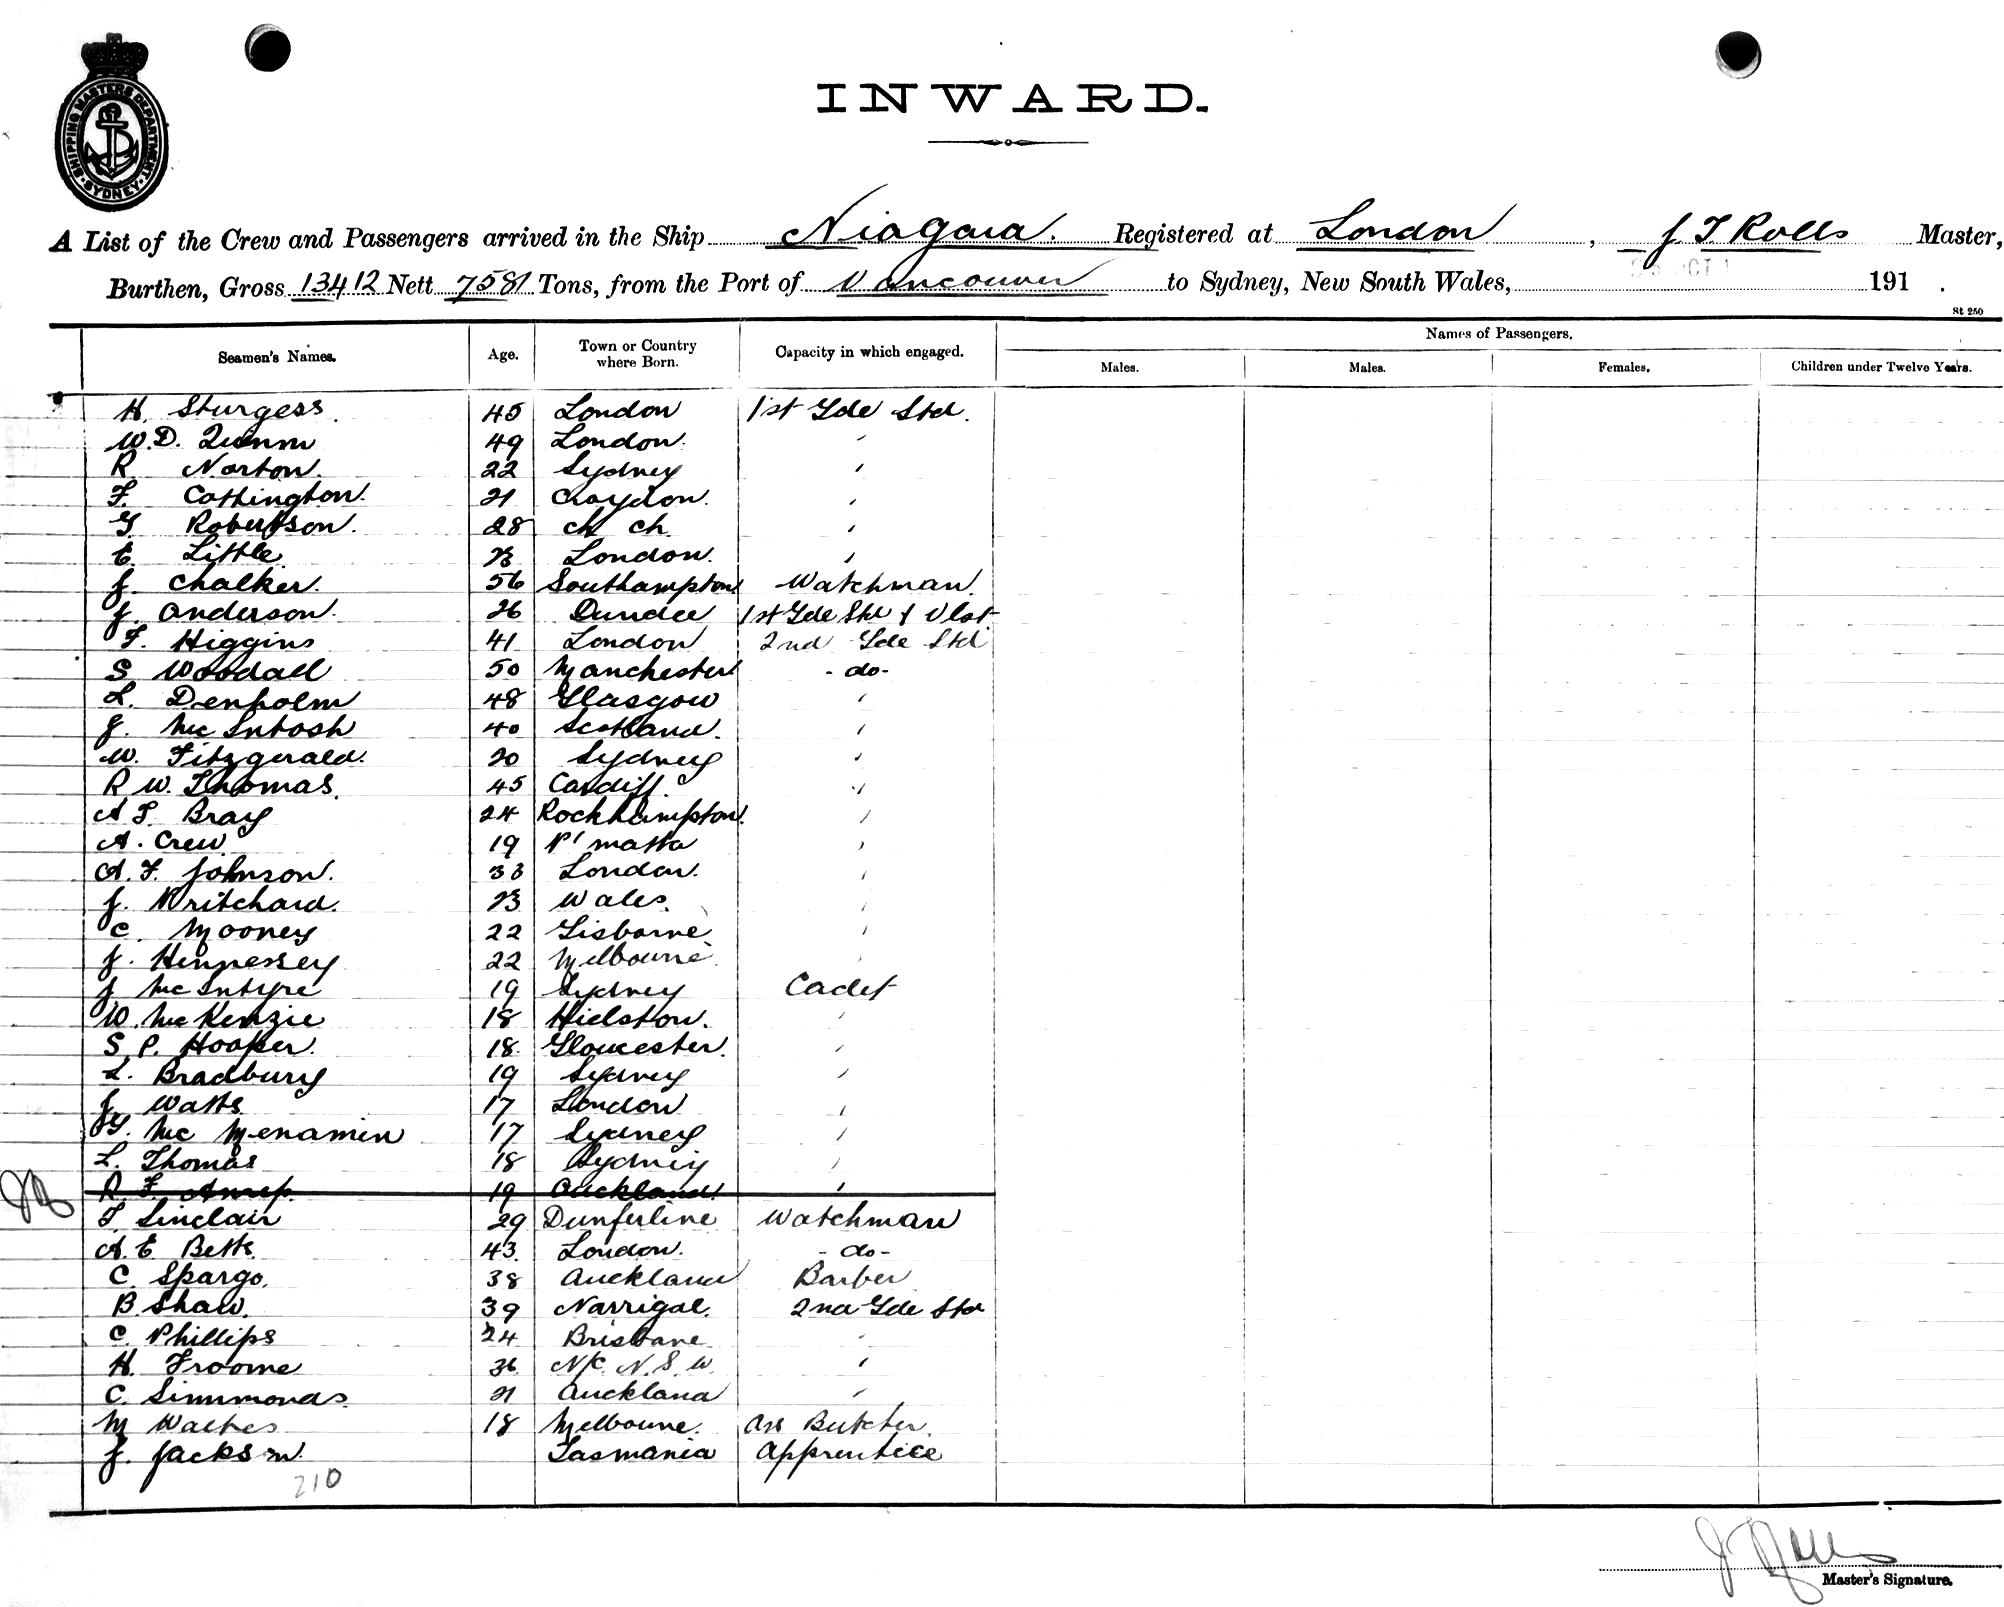 SHIPPING MASTERS DEPARTMENT
SYDNEY
INWARD.
A List of the Crew and Passengers arrived in the Ship Niagara. Registered at London, J T Rolls Master,
Burthen, Gross 13412 Nett 7581 Tons, from the Port of Vancouver to Sydney, New South Wales, OCT 191 .
St 250
Names of Passengers.
Seamen's Names. Age. Town or Country where Born. Capacity in which engaged. Males. Males. Females. Children under Twelve Years.
H. Sturgess. 45 London 1st Gde Std.
W.D. Quinn 49 London. "
R Norton. 22 Sydney "
F. Cottington. 21 Croydon. "
G Robertson. 28 Ch Ch. "
E. Little 23 London. "
J. Chalker. 56 Southampton Watchman.
J. Anderson. 26 Dundee 1st Gde Std &
F. Higgins 41 London 2nd Gde Std
S Woodall 50 Manchester - do -
L. Denholm 48 Glasgow "
J. McIntosh 40 Scotland. "
W. Fitzgerald. 20 Sydney "
R W. Thomas. 45 Cardiff. "
A T. Bray 24 Rockhampton. "
A. Crew 19 P'matta "
A. F. Johnson. 33 London. "
J. Pritchard. 23 Wales. "
C. Mooney 22 Gisborne. "
J. Hennessey 22 Melbourne "
J McIntyre 19 Sydney Cadet
W. McKenzie 18 Hielston. "
S. P. Hooper. 18. Gloucester. "
L. Bradbury 19 Sydney "
J. Watts 17 London "
G. McMenamin 17 Sydney "
L. Thomas 18 Sydney "
R F 19 Auckland. "
T. Sinclair 29 Dunferline Watchman
A. E Betts. 43. London. - do -
C. Spargo. 38 Auckland Barber
B. Shaw. 39 Narrigal. 2nd Gde Std
C. Phillips 24 Brisbane "
H. Froome 36 N/C. N. S. W. "
C. Simmonds. 21 Auckland "
M 18 Melbourne. Ass Butcher.
J. Jackson. Tasmania Apprentice
210
J T Rolls
Master's Signature.